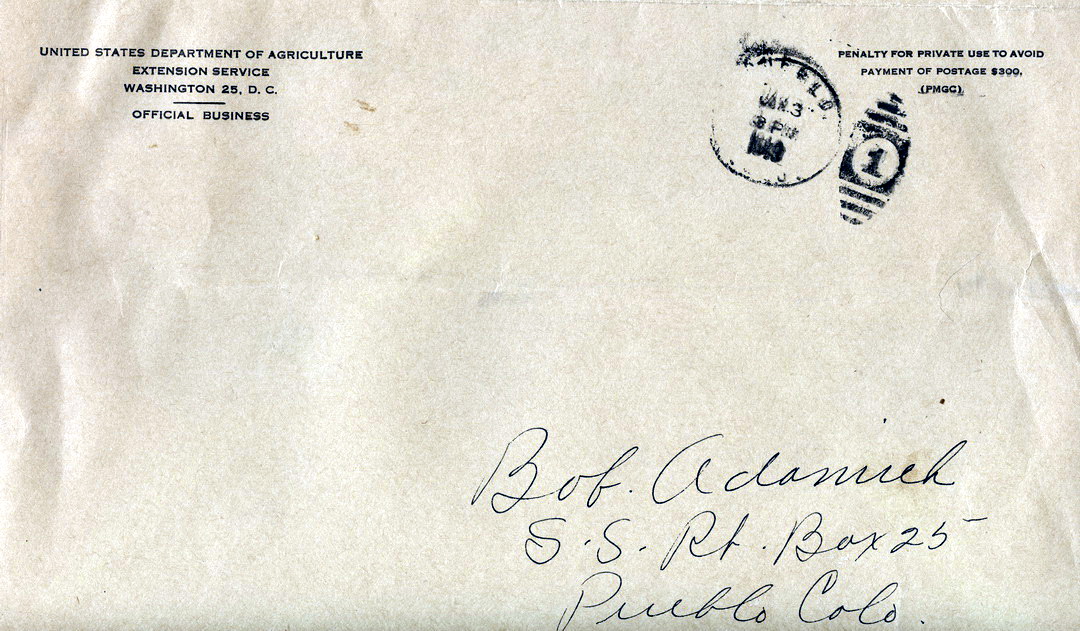 UNITED STATES DEPARTMENT OF AGRICULTURE
EXTENSION SERVICE
WASHINGTON 25, D. C.
OFFICIAL BUSINESS
PENALTY FOR PRIVATE USE TO AVOID
PAYMENT OF POSTAGE $300.
(PMGC)
JAN 3
8 PM
1
Bob. Adamich
S.S. Rt. Box 25
Pueblo Colo.